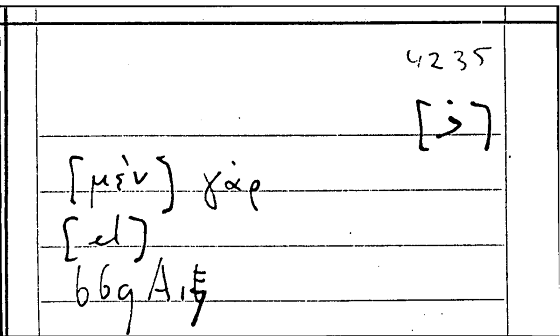 4235
[μὲν] γὰρ
[el]
669 A,